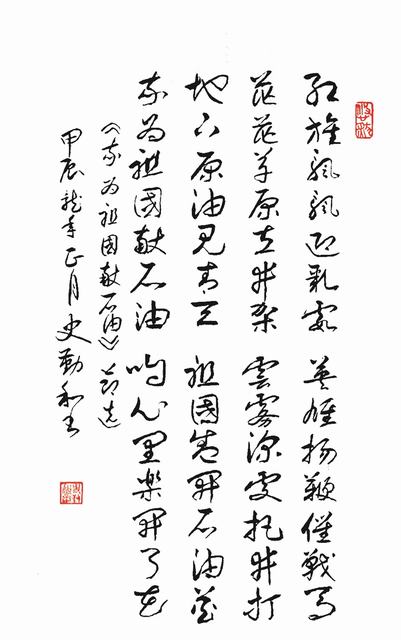 红旗飘飘迎彩霞 英雄扬鞭催戰马
茫茫草原立井架 雲霧深處把井打
地下原油见青天 祖國盛開石油花
我为祖國献石油 啊心里樂開了花
《我为祖國献石油》节选
甲辰龍年正月史勤和书